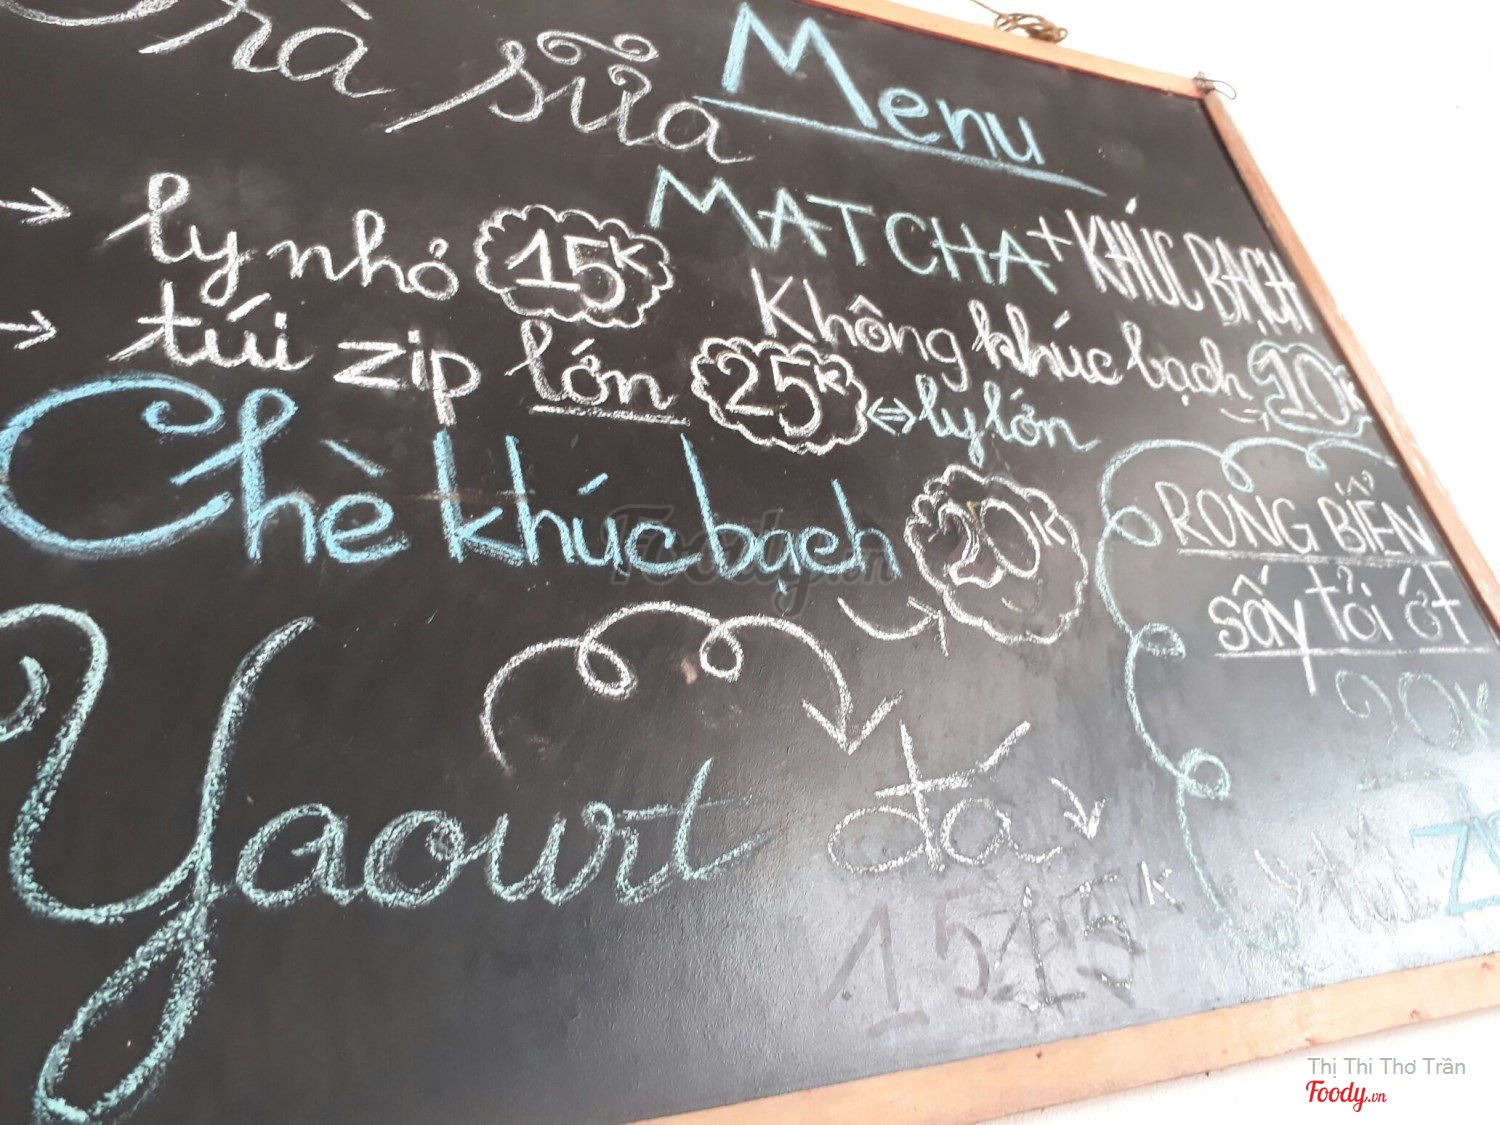 Trà sữa
Menu
→ ly nhỏ 15K
→ túi zip lớn 25K ⇔ ly lớn
MATCHA + KHÚC BẠCH
Không khúc bạch 10K
Chè khúc bạch 20K
RONG BIỂN
sấy tỏi ớt
20K
Yaourt đá
15K
Foody.vn
Thị Thi Thơ Trần
Foody.vn